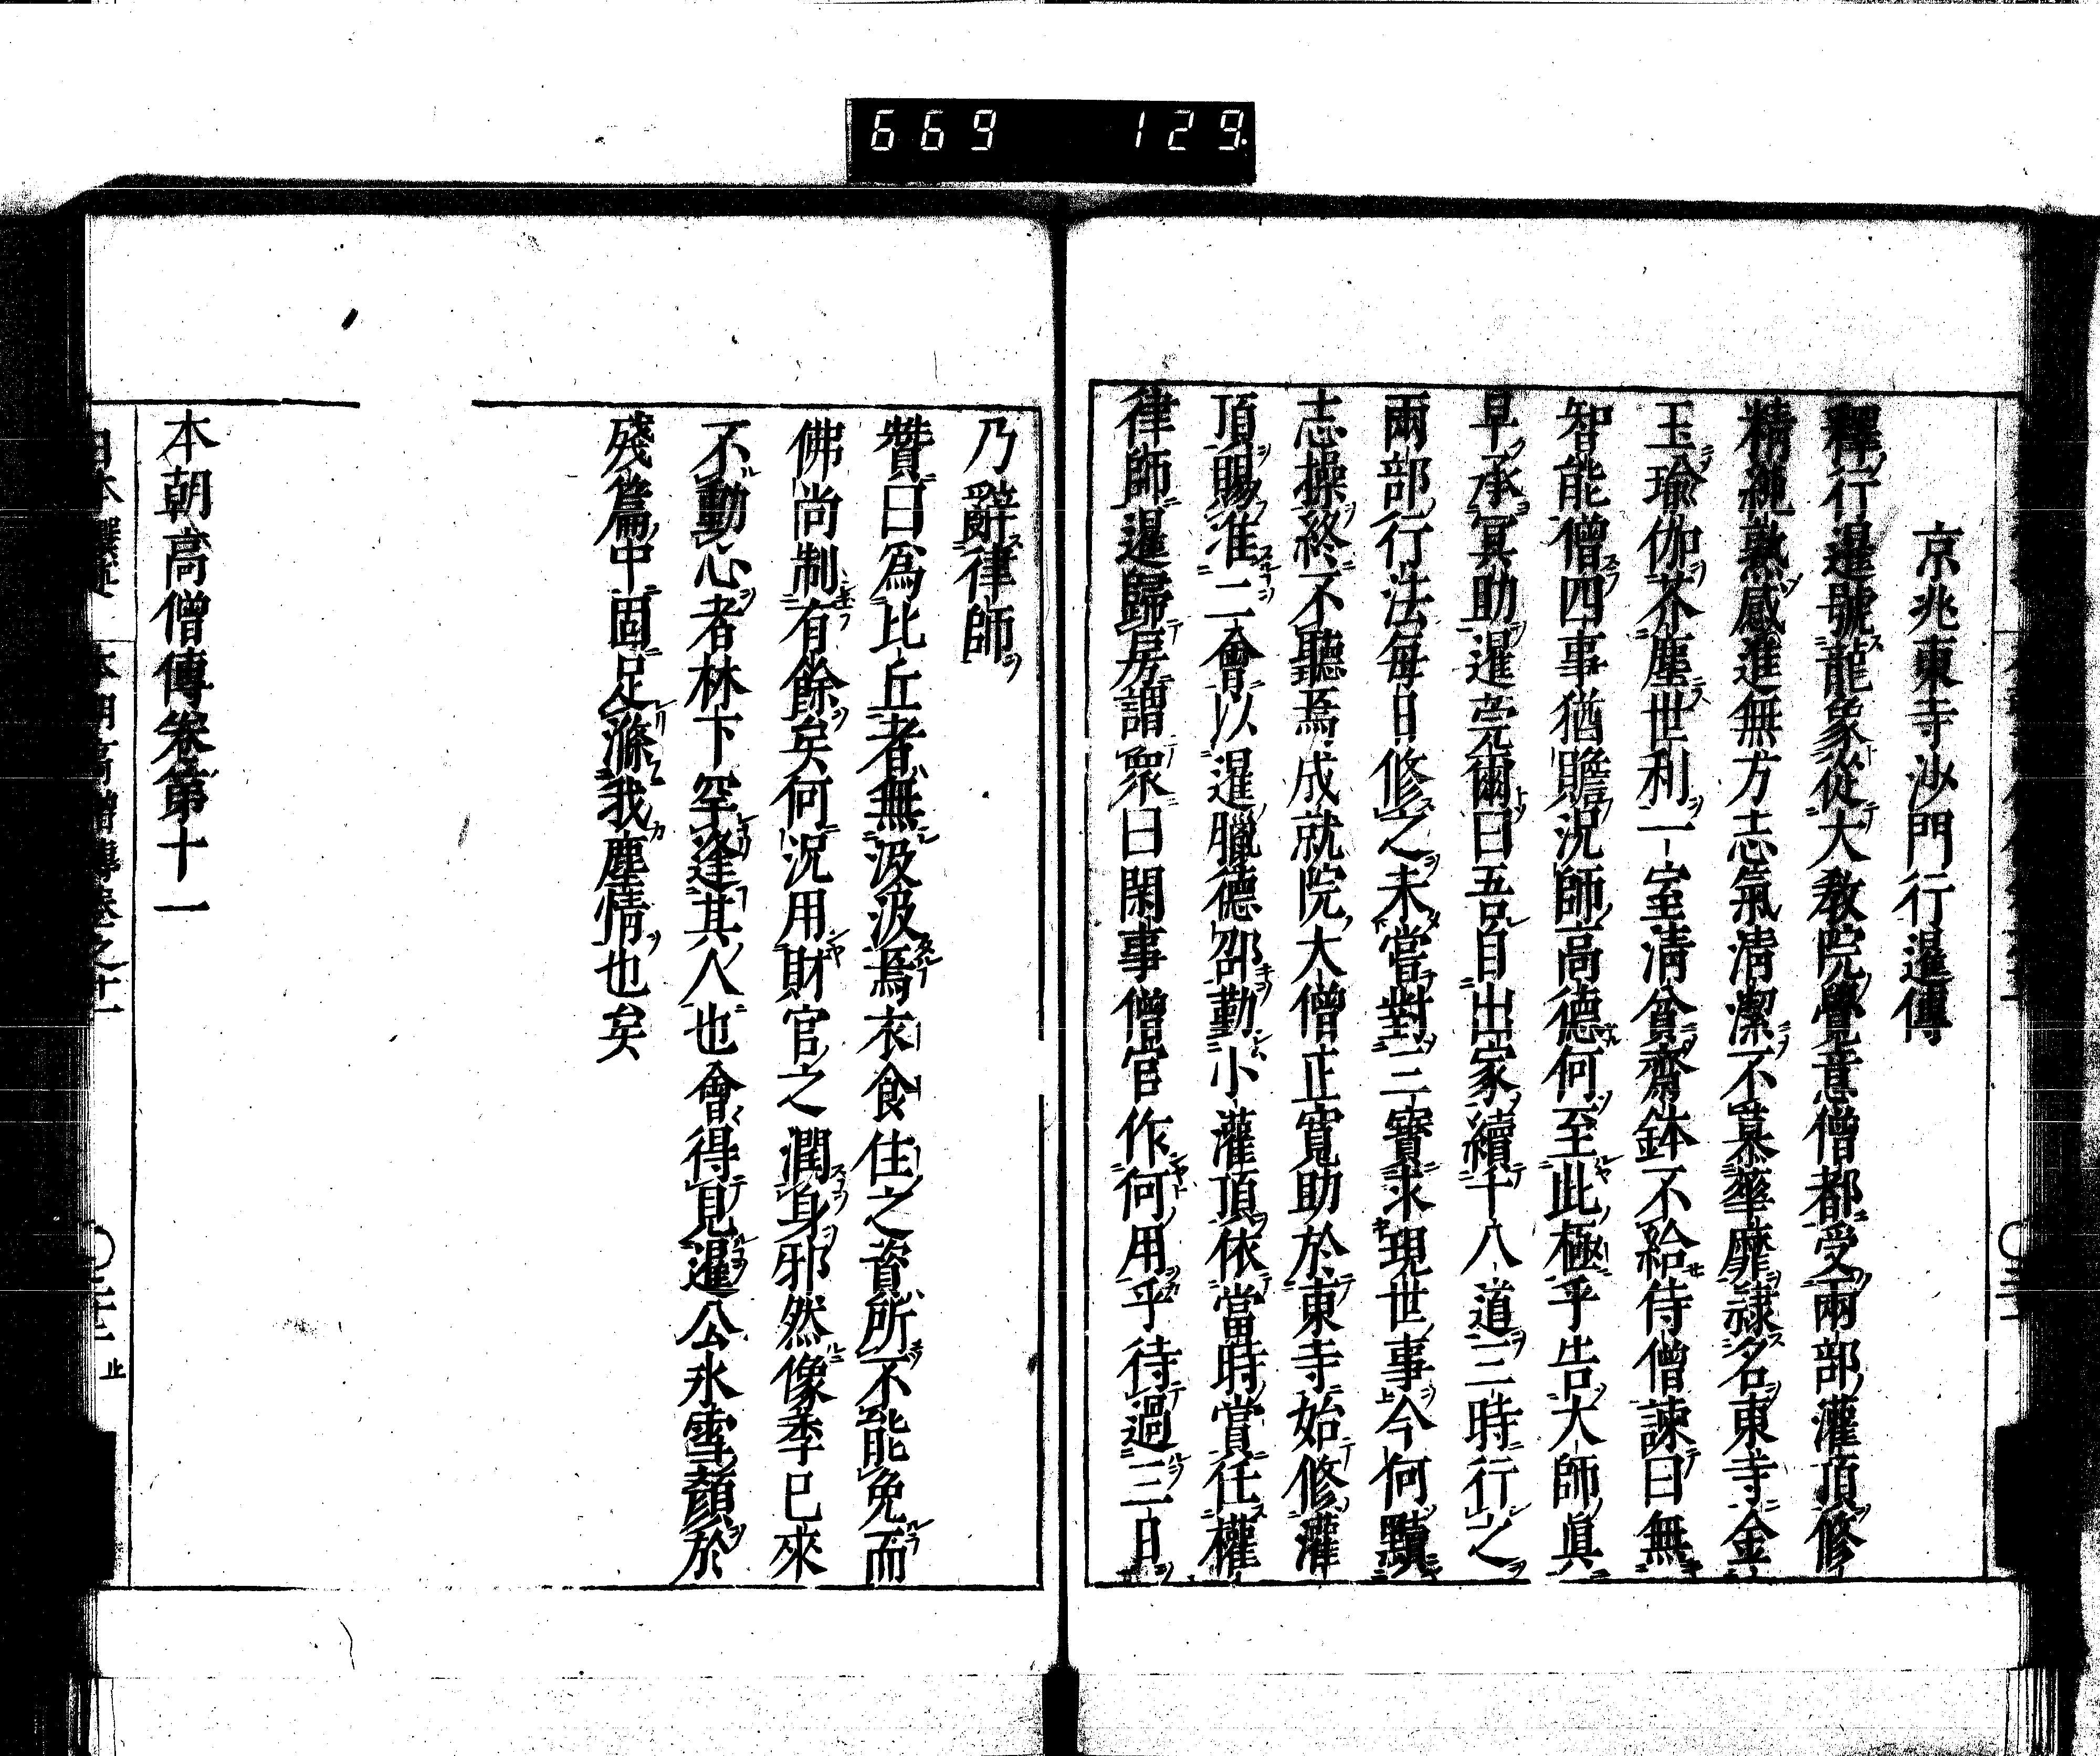 669 129
京兆東寺沙門行暹傳
釋行暹號龍象從大教院覺意僧都受兩部灌頂修
精純熟感進無方志氣清潔不慕華靡祿名東寺金
玉瑜伽芥塵世利一室清貧齋鉢不給侍僧諫曰無
智能僧四事猶贍況師高德何至此極乎告大師眞
早承冥助暹莞爾曰吾自出家續十八道三時行之
兩部行法每日修之未當對三寶求現世事今何黷
志操終不聽焉成就院大僧正寬助於東寺始修灌
頂賜准二會以暹臘德邵勤小灌頂依當時賞任權
律師暹歸房謂衆曰閑事僧官作何用乎待過三日
乃辭律師
贊曰爲比丘者無汲汲焉衣食住之資所不能免而
佛尚制有餘矣何況用財官之潤身邪然像季已來
不動心者林下罕逢其人也會得見暹公氷雪顏於
殘篇中固足滌我塵情也矣
本朝高僧傳卷第十一
本朝高僧傳卷之十一
止